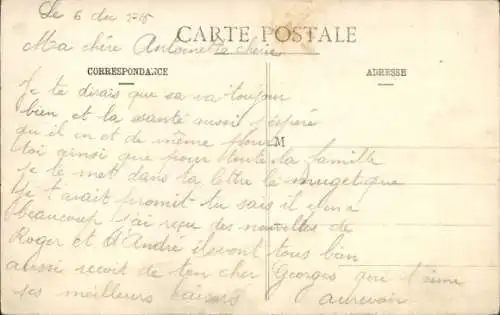 Le 6 dec 1915
CARTE POSTALE
Ma chére Antoinette cherie
CORRESPONDANCE
ADRESSE
Je te dirais que sa va toujour
bien et la santé aussi j'espére
qu'il en et de même pour
M
toi ainsi que pour toute la famille
Je te met dans ta lettre le muguet que
Je t'avait promit tu sais il
beaucoup j'ai reçue des nouvelles de
Roger et d'André ils vont tous bien
aussi recoit de ton cher Georges qui t'aime
ses meilleurs baisers aurevoir